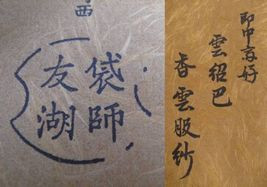 西
袋師
友湖
即中斎好
雲紹巴
香雲服紗